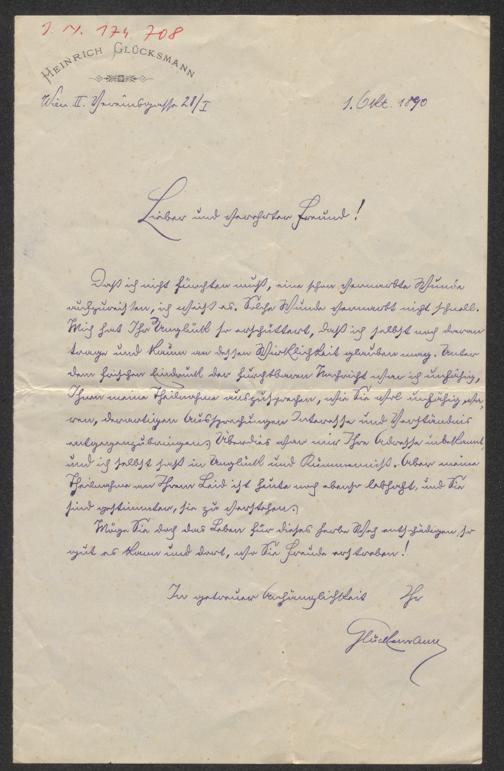 J. N. 174 708
HEINRICH GLÜCKSMANN
Wien II. Vereinsgasse 28/I
1. Okt. 1890
Lieber und verehrter Freund!
Daß ich nicht fürchten muß, eine schon vernarbte Wunde
aufzureißen, ich weiß es. Solche Wunde vernarbt nicht schnell.
Mich hat Ihr Unglück so erschüttert, daß ich selbst noch daran
trage und kaum an dessen Wirklichkeit glauben mag. Unter
dem frischen Eindruck der furchtbaren Nachricht war ich unfähig,
Ihnen meine Theilnahme auszusprechen, wie Sie wol unfähig wa-
ren, derartigen Aussprechungen Interesse und Verständnis
entgegenzubringen; Überdies war mir Ihre Adresse unbekannt
und ich selbst saß in Unglück und Kümmerniß. Aber meine
Theilnahme an Ihrem Leid ist heute noch ebenso lebhaft, und Sie
sind gestimmter, sie zu verstehen.
Möge Sie doch das Leben für dieses herbe Weh entschädigen, so
gut es kann und dort, wo Sie Freude erstreben!
In getreuer Anhänglichkeit Ihr
Glücksmann